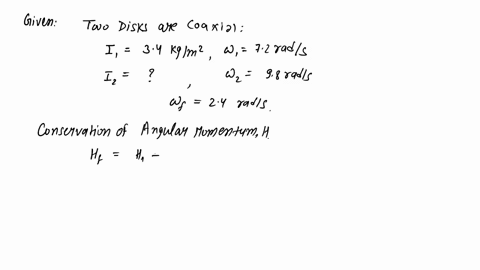 Given: Two Disks are Coaxial:
I₁ = 3.4 kg/m², ω₁ = 7.2 rad/s
I₂ = ? , ω₂ = 9.8 rad/s
ω_f = 2.4 rad/s.
Conservation of Angular Momentum, H.
H_f = H₁ -